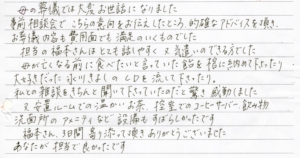 母の葬儀では大変お世話になりました
事前相談会で こちらの意向をお伝えしたところ 的確なアドバイスを頂き、
お葬儀の内容も費用面でも満足のいくものでした
担当の福本さんはとても話しやすく 又 気遣いのできる方でした
母が亡くなる前に食べたいと言っていた鮨を棺に納めて下さったり
大好きだった 氷川きよしの CDを流して下さったり、
私との相談をきちんと聞いて下さっていたのだと 驚き 感動しました
又 安置ルームでの温かいお茶 控室でのコーヒーサーバー 飲み物
洗面所のアメニティなど 設備もすばらしかったです
福本さん、3日間 寄り添って頂き ありがとうございました
あなたが担当で良かったです